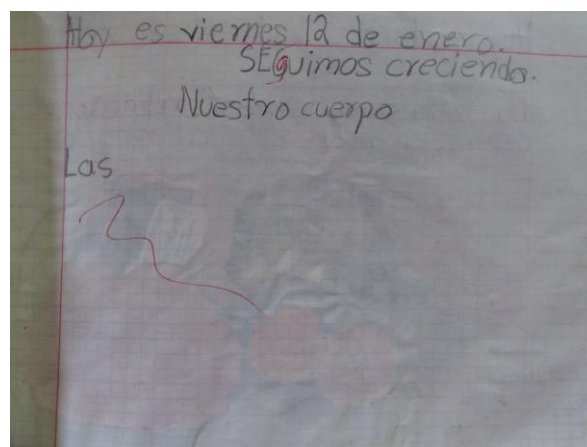 Hoy es viernes 12 de enero.
SEguimos creciendo.
Nuestro cuerpo
Las